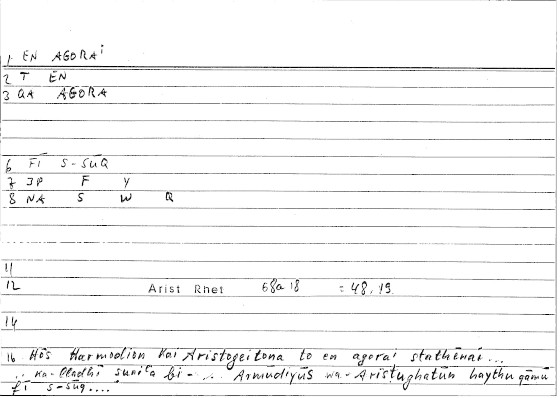 1 EN AGORAi
2 T EN
3 QA AGORA
6 FĪ S-SŪQ
7 JP F Y
8 NA S W Q
11
12 Arist Rhet 68a18 = 48,19
14
16 Hōs Harmodion kai Aristogeitona to en agorai stathēnai...
.. ka-lladhī suniʿa bi- .. Armūdiyūs wa-Aristughatūn haythu qāmū
fī s-sūq....